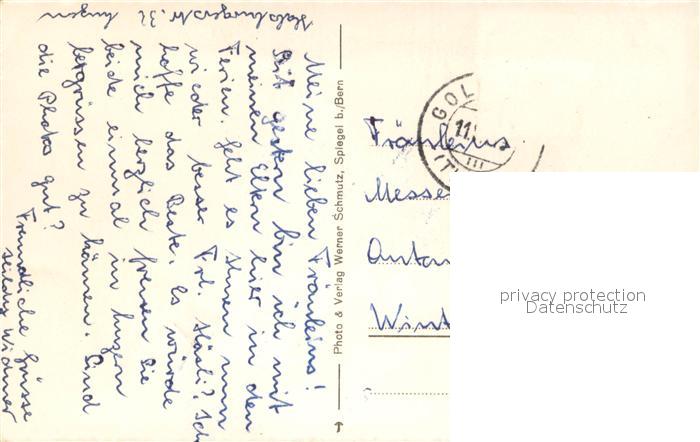 Habsburgerstr. 32
Luzern
Meine lieben Fräuleins!
Seit gestern bin ich mit
meinen Eltern hier in den
Ferien. Geht es Ihnen nun
wieder besser Frl. Stäsli? Ich
hoffe das Beste. Es würde
mich herzlich freuen Sie
beide einmal in Luzern
begrüssen zu können. Sind
die Photos gut?
Freundliche Grüsse
Widmer
Photo & Verlag Werner Schmutz, Spiegel b./Bern
GOL
11.
(T
III
Fräuleins
Messe
Anton
Wint
privacy protection
Datenschutz